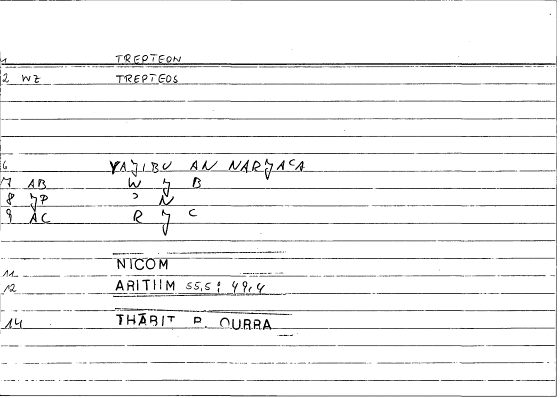 1 TREPTEON
2 WZ TREPTEOS
6 YAJIBU AN NARJAʿA
7 AB W J B
8 JP ʾ N
9 AC R J C
11 NICOM
12 ARITHM 55,5; 49,4
14 THĀBIT B. QURRA